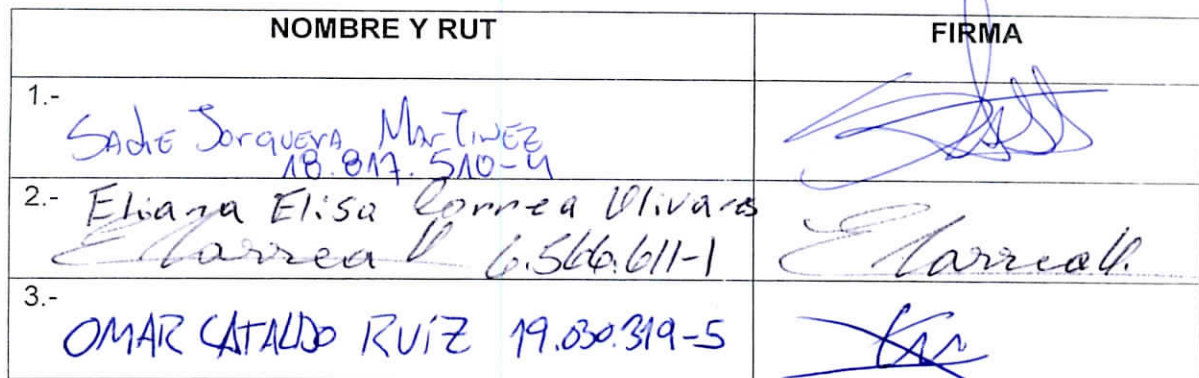 NOMBRE Y RUT FIRMA
1.-
Sadie Jorquera Martinez
18.817.510-4
2.- Eliana Elisa Correa Olivares
ECorrea O 6.566.611-1 ECorreaO.
3.-
OMAR CATALDO RUíZ 19.030.319-5